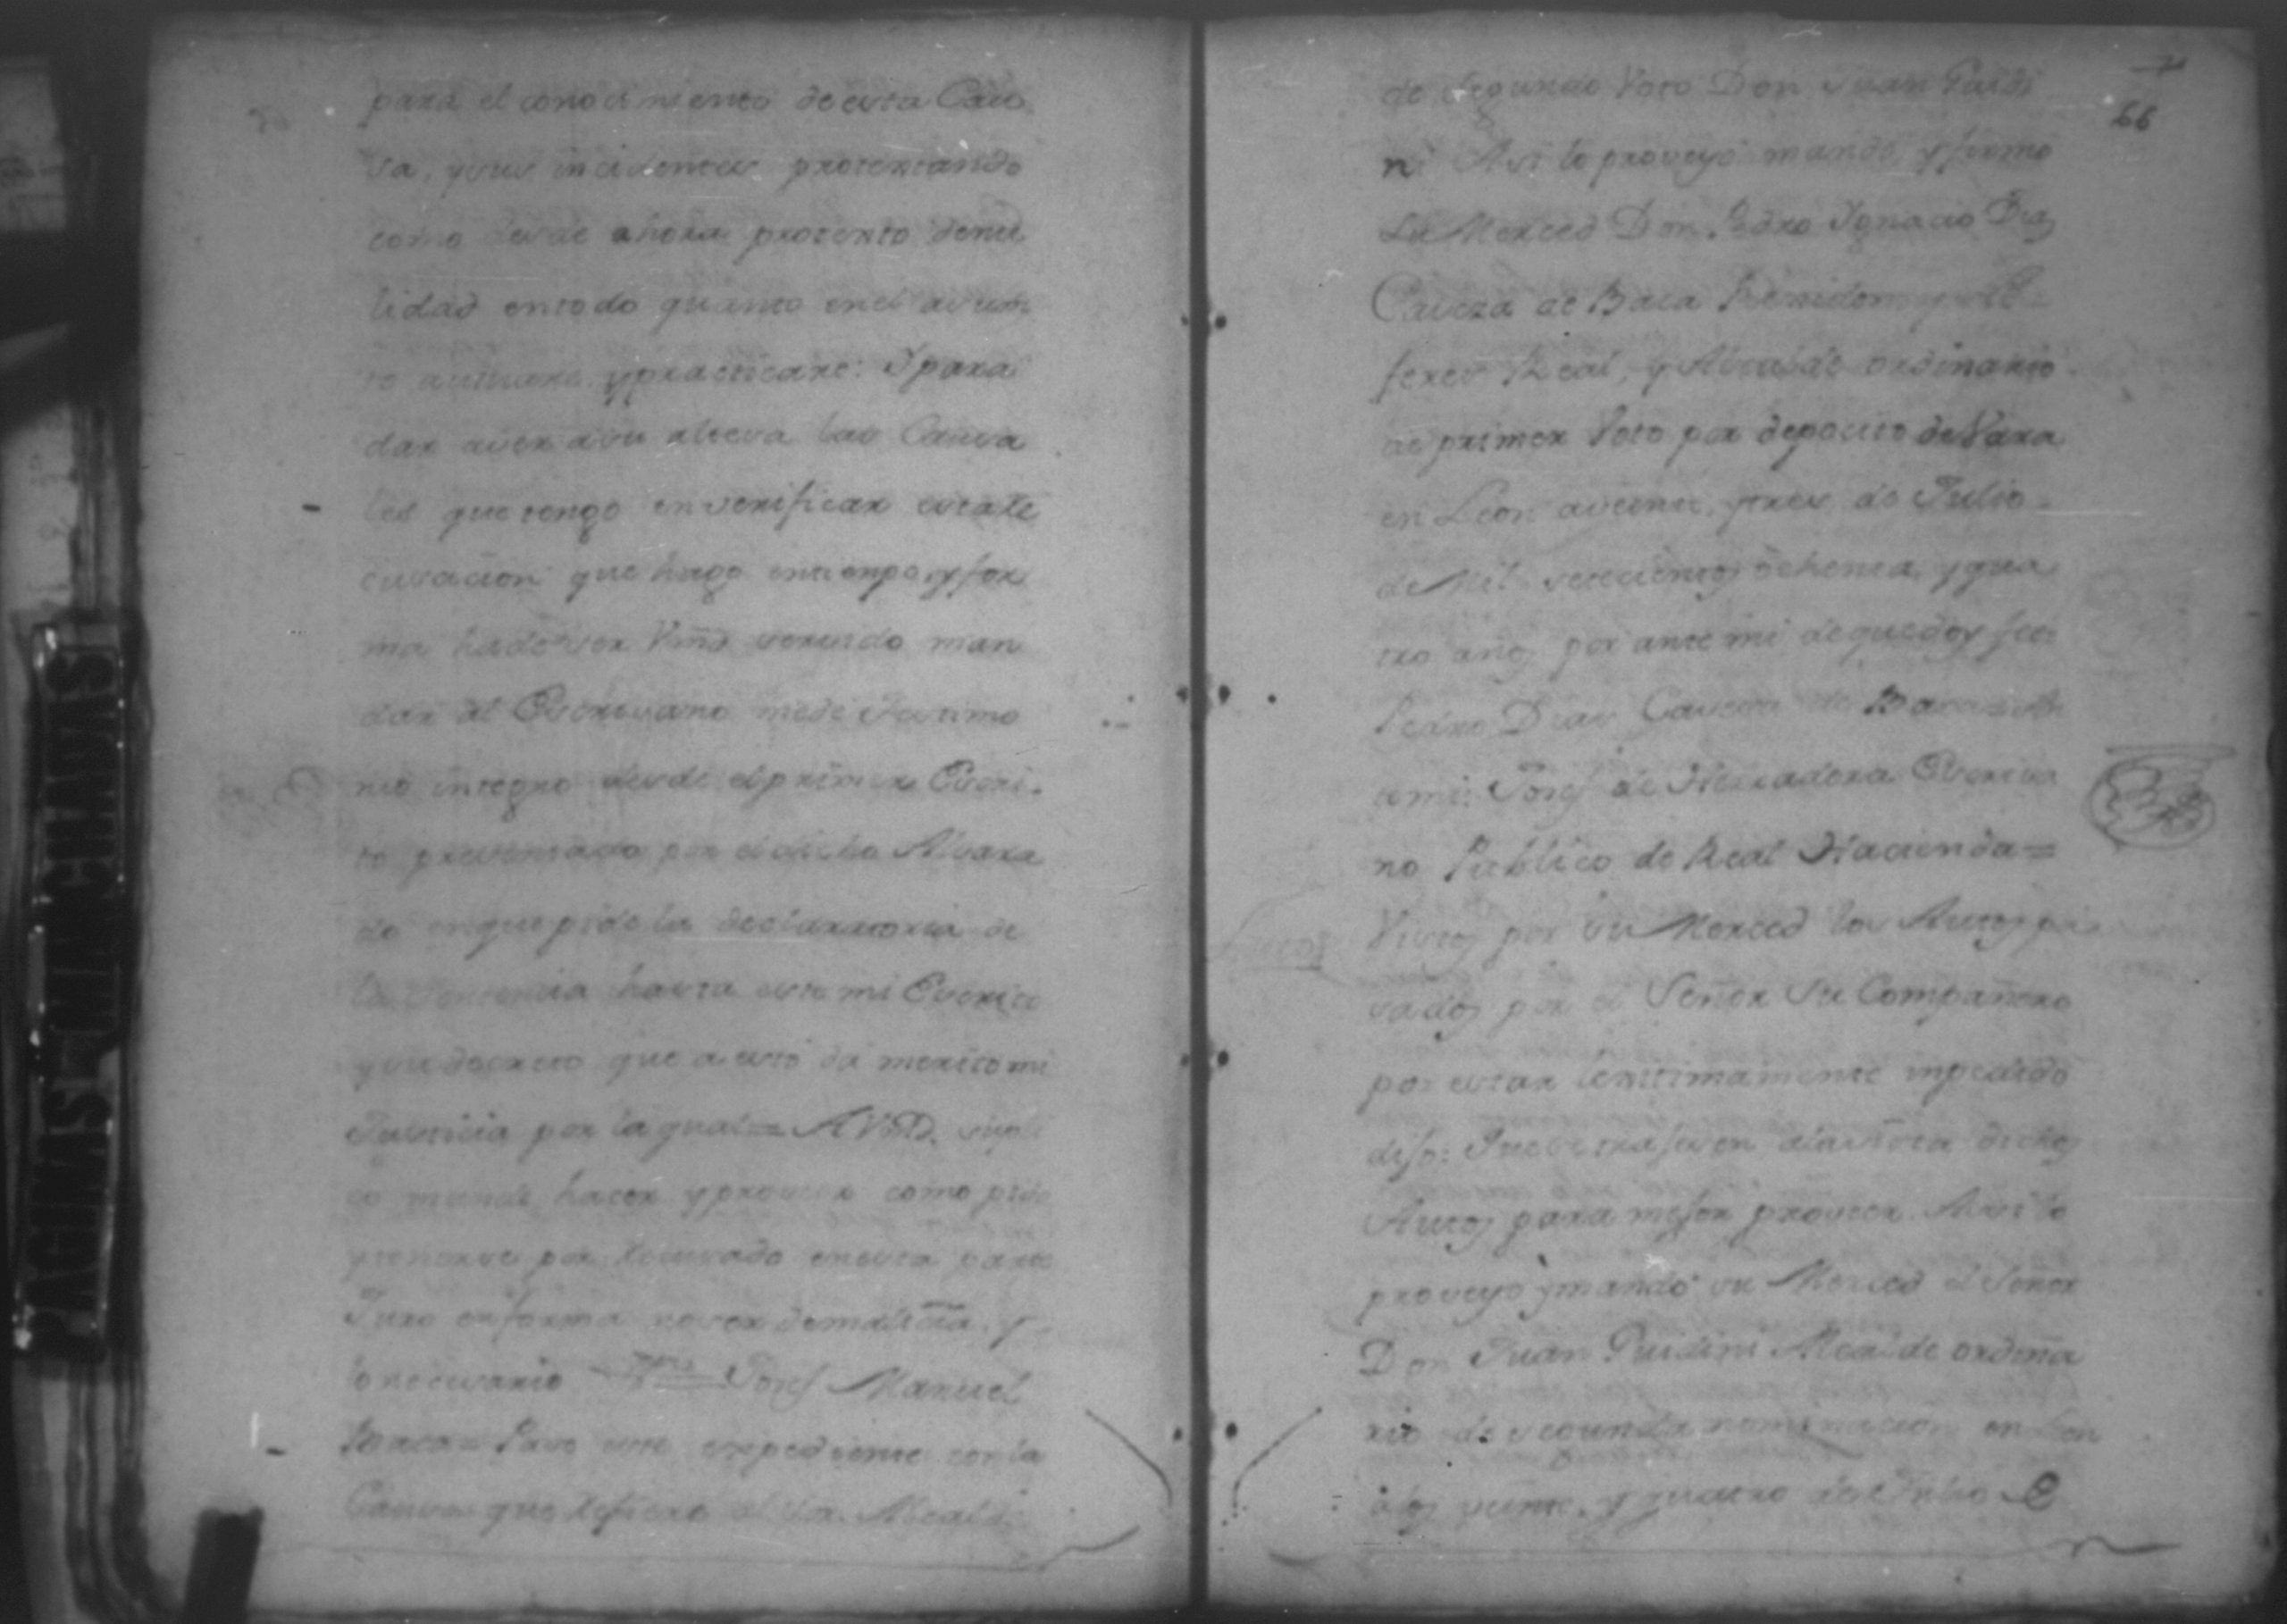 para el conocimiento de esta Cau
sa, y sus incidentes protestando
como desde ahora protesto denu
lidad entodo quanto en el asum
to actuare ypracticare: Ypara
dar aver asu alteza las Causa
les que tengo en verificar esta Re
cusacion que hago entiempo y for
ma hadeser Vmd servido man
dar al Escrivano mede Testimo
nio integro desde el primer Escri
to presentado por el dicho Alvara
do enque pide la declaratoria de
la Sentencia hasta este mi Escrito
y su decreto que a esto da merito mi
Justicia por la qual = A Vmd. supli
co mande hacer yproveer como pido
ytenerve por Recusado enesta parte
Juro enforma noser demalicia, y
lo necesario Josef Manuel
Baca = Pase este expediente con la
Causa que Refiere al Sor. Alcalde
66
de Segundo Voto Don Juan Puidi
ni Asi lo proveyó mandó y firmo
Su Merced Don Pedro Ygnacio Dias
Caveza de Baca
ferez Real, y Alcalde ordinario
de primer Voto por deposito de Vara
en Leon aveinte, ytres de Julio
de Mil setecientos ochenta, y qua
tro años por ante mi deque doy fee
Pedro Dias Caveza de Baca = An
temi: Josef de Escriva
no Publico de Real Hacienda =
Autos
Vistos por su Merced los Autos pa
sados por el Señor Su Compañero
por estar lexitimamente impedido
dijo: alavista dichos
Autos para mejor proveer. Assi lo
proveyo ymandó su Merced el Señor
Don Juan Puidini Alcalde ordina
rio de segunda nominacion en Leon
álos veinte, y quatro de Julio